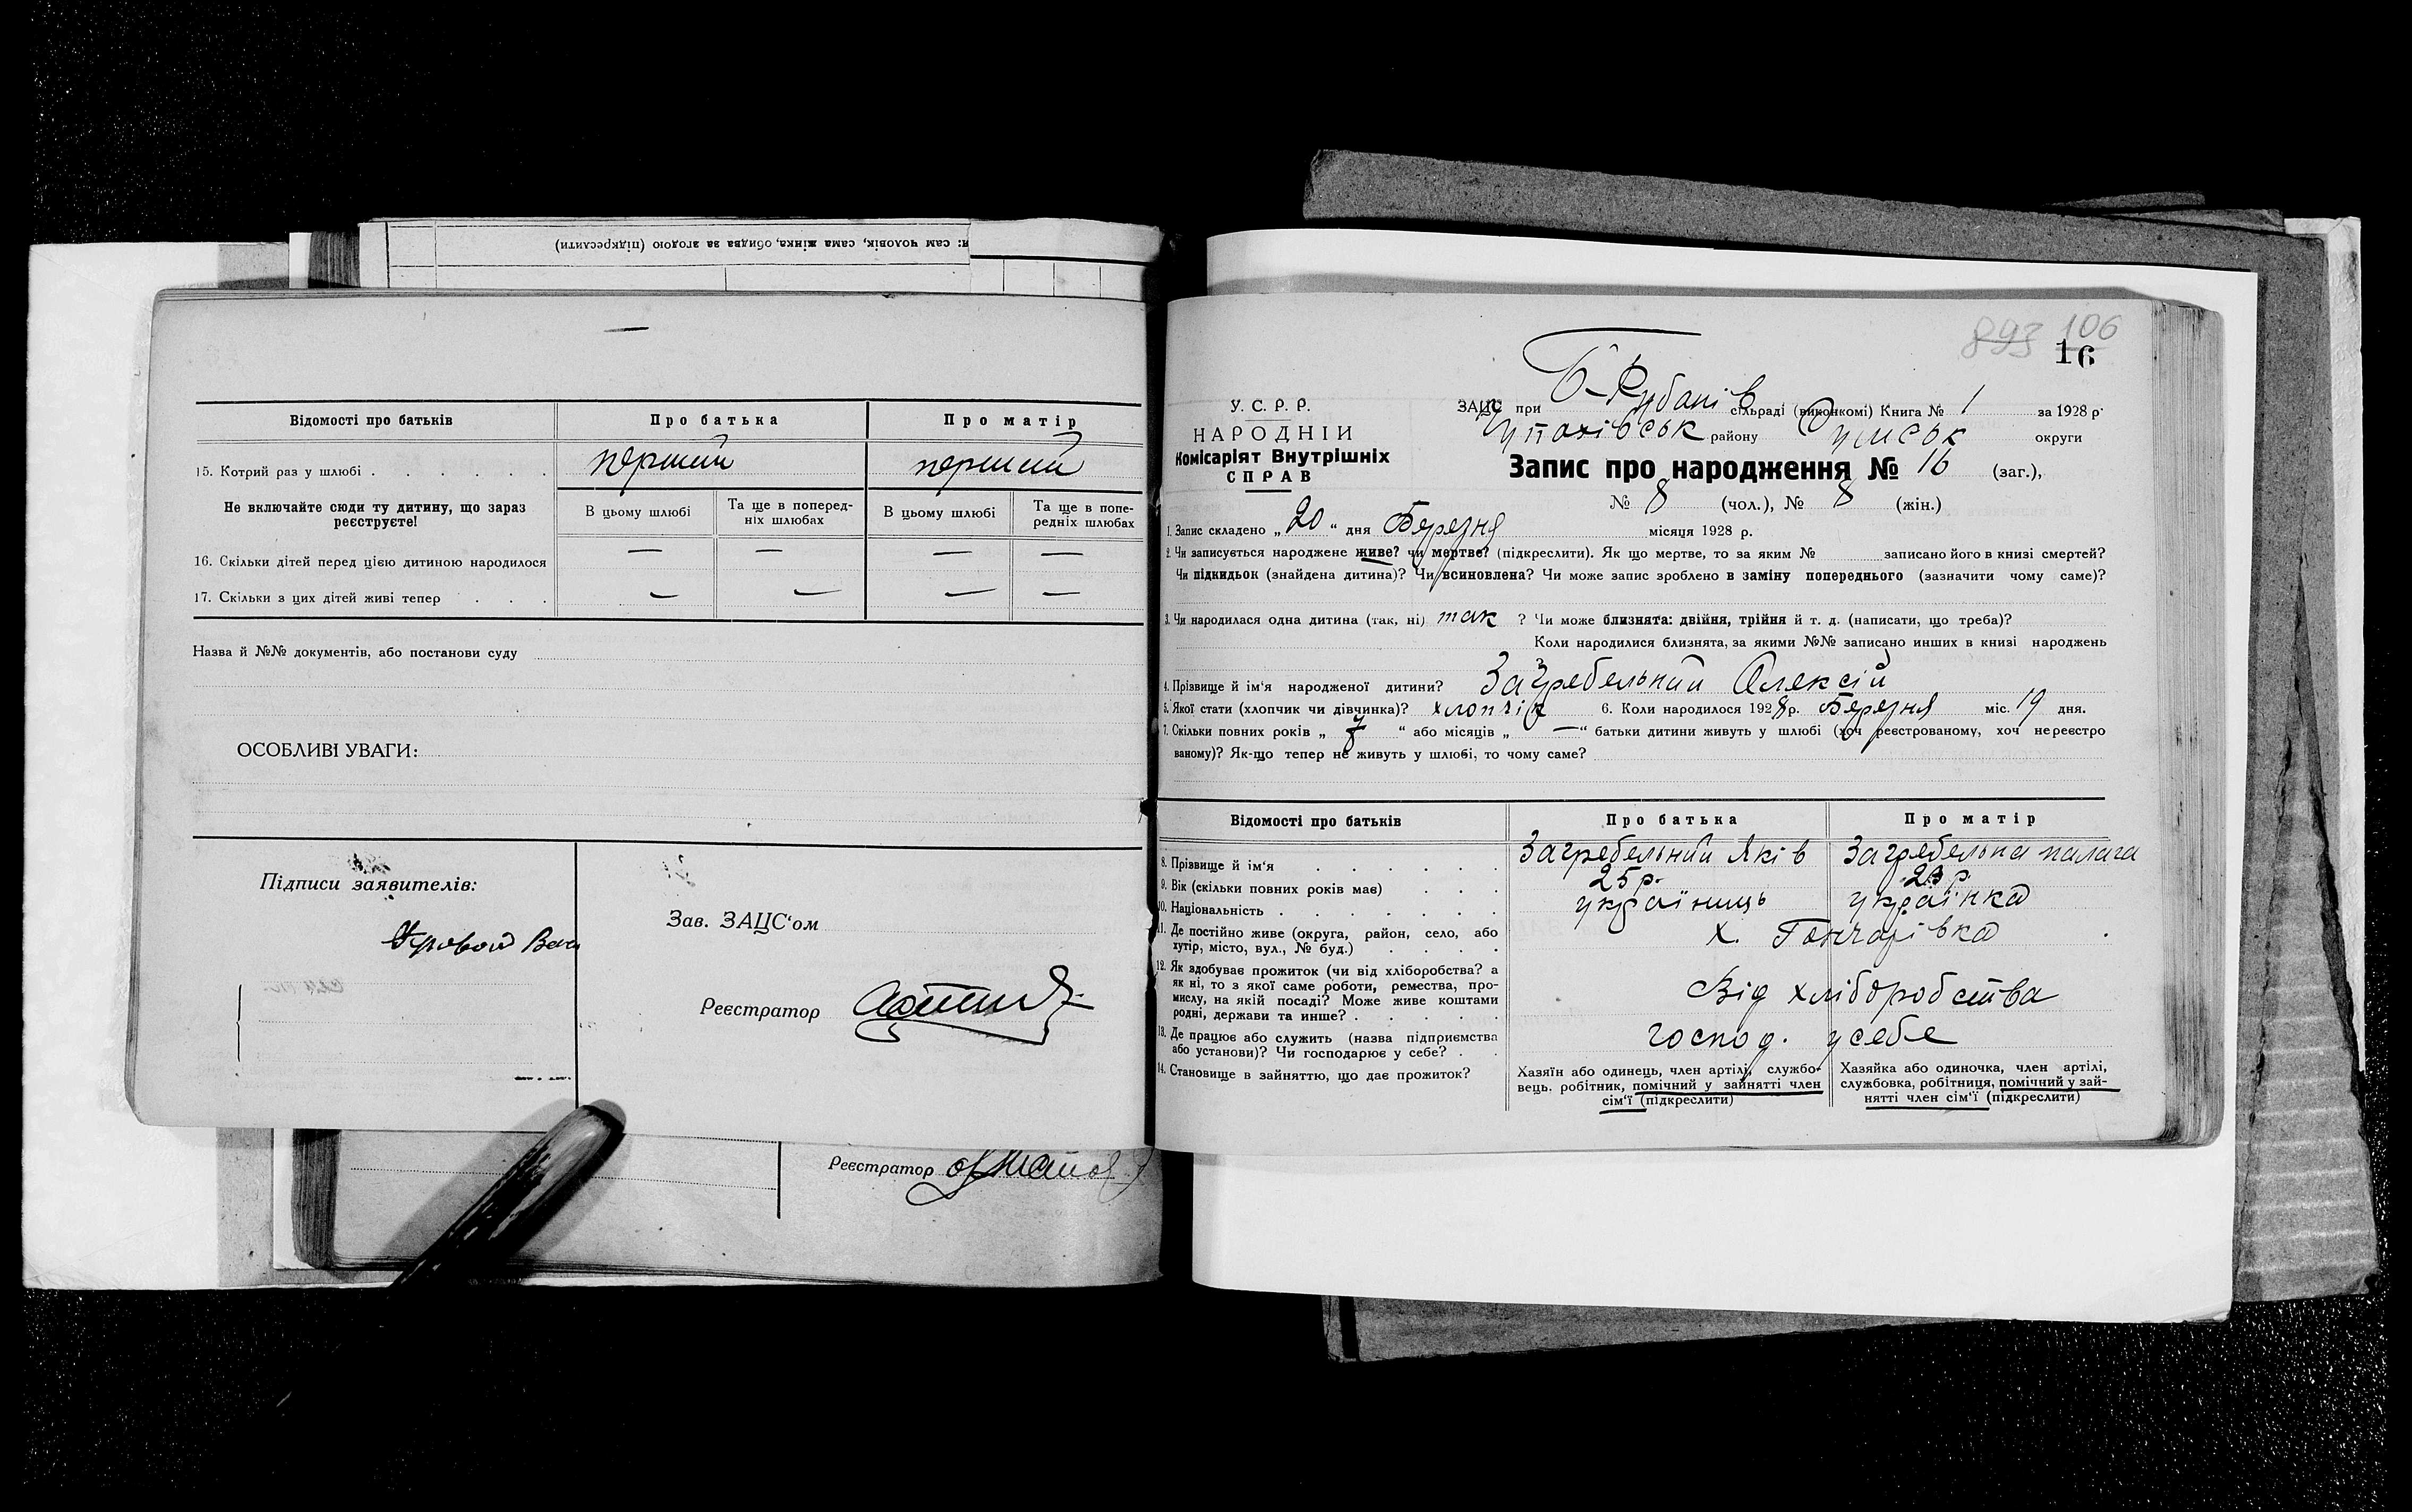 и: сам чоловік, сама жінка, обидва за згодою (підкреслити)
Відомості про батьків
Про батька
Про матір
15. Котрий раз у шлюбі . . . . . .
перший
перший
Не включайте сюди ту дитину, що зараз реєструєте!
В цьому шлюбі
Та ще в поперед-
ніх шлюбах
В цьому шлюбі
Та ще в попе-
редніх шлюбах
16. Скільки дітей перед цією дитиною народилося
— — — —
17. Скільки з цих дітей живі тепер . . .
— — — —
Назва й №№ документів, або постанови суду
ОСОБЛИВІ УВАГИ:
Підписи заявителів:
Зав. ЗАЦС'ом
Реєстратор
Реєстратор
893 106
16
У. С. Р. Р.
НАРОДНІЙ
Комісаріят Внутрішніх
СПРАВ
ЗАЦС при Б-Рубанів сільраді (виконкомі) Книга № 1 за 1928 р.
району округи
Запис про народження № 16 (заг.),
№ 8 (чол.), № 8 (жін.)
1. Запис складено „ 20 “ дня Березня місяця 1928 р.
2. Чи записується народжене живе? чи мертве? (підкреслити). Як що мертве, то за яким № записано його в книзі смертей?
Чи підкидьок (знайдена дитина)? Чи всиновлена? Чи може запис зроблено в заміну попереднього (зазначити чому саме)?
3. Чи народилася одна дитина (так, ні) так ? Чи може близнята: двійня, трійня й т. д. (написати, що треба)?
Коли народилися близнята, за якими №№ записано инших в книзі народжень
4. Прізвище й ім'я народженої дитини? Загребельний Олексій
5. Якої стати (хлопчик чи дівчинка)? хлопчік 6. Коли народилося 1928 р. Березня міс. 19 дня.
7. Скільки повних років „ “ або місяців „ — “ батьки дитини живуть у шлюбі (хоч реєстрованому, хоч нереєстро
ваному)? Як-що тепер не живуть у шлюбі, то чому саме?
Відомості про батьків
Про батька
Про матір
8. Прізвище й ім'я . . . . . .
Загребельний Яків
Загребельна палага
9. Вік (скільки повних років має) . . .
25 р.
23 р.
10. Національність . . . . . . .
українець
українка
11. Де постійно живе (округа, район, село, або
хутір, місто, вул., № буд.) . . . .
х. Гончарівка
12. Як здобуває прожиток (чи від хліборобства? а
як ні, то з якої саме роботи, ремества, про-
мислу, на якій посаді? Може живе коштами
родні, держави та инше? . . . . .
Від хліборобства
13. Де працює або служить (назва підприємства
або установи)? Чи господарює у себе? . .
господ. у себе
14. Становище в зайняттю, що дає прожиток?
Хазяїн або одинець, член артілі, службо-
вець. робітник, помічний у зайнятті член
сім'ї (підкреслити)
Хазяйка або одиночка, член артілі,
службовка, робітниця, помічний у зай-
нятті член сім'ї (підкреслити)